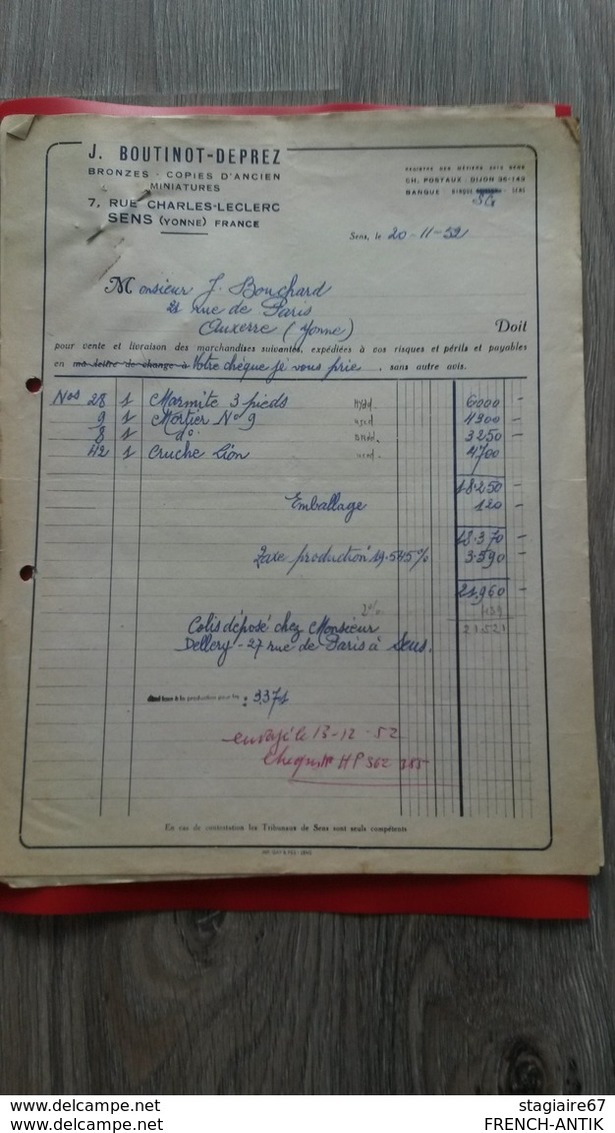 J. BOUTINOT-DEPREZ
BRONZES - COPIES D'ANCIEN
MINIATURES
7, RUE CHARLES-LECLERC
SENS (YONNE) FRANCE
REGISTRE DES MÉTIERS SENS
CH. POSTAUX : DIJON 36-143
BANQUE : SENS
SG
Sens, le 20-11-52
Monsieur J. Bouchard
21 rue de Paris
Auxerre (Yonne)
Doit
pour vente et livraison des marchandises suivantes, expédiées à vos risques et périls et payables
en ma lettre de change à Votre chèque je vous prie, sans autre avis.
Nos 28 1 Marmite 3 pieds 6000 -
9 1 Mortier No 9 4300 -
8 1 do. 3250 -
42 1 Cruche Lion 4700
18.250 -
Emballage 120 -
18.370 -
Taxe production 19.545% 3.590 -
21.960 -
2% 439
21.521
Colis déposé chez Monsieur
Dellery - 27 rue de Paris à Sens.
taxe à la production pour frs : 3.371
envoyé le 13-12-52
Chèque HP 362 385
En cas de contestation les Tribunaux de Sens sont seuls compétents
www.delcampe.net
www.delcampe.net
stagiaire67
FRENCH-ANTIK